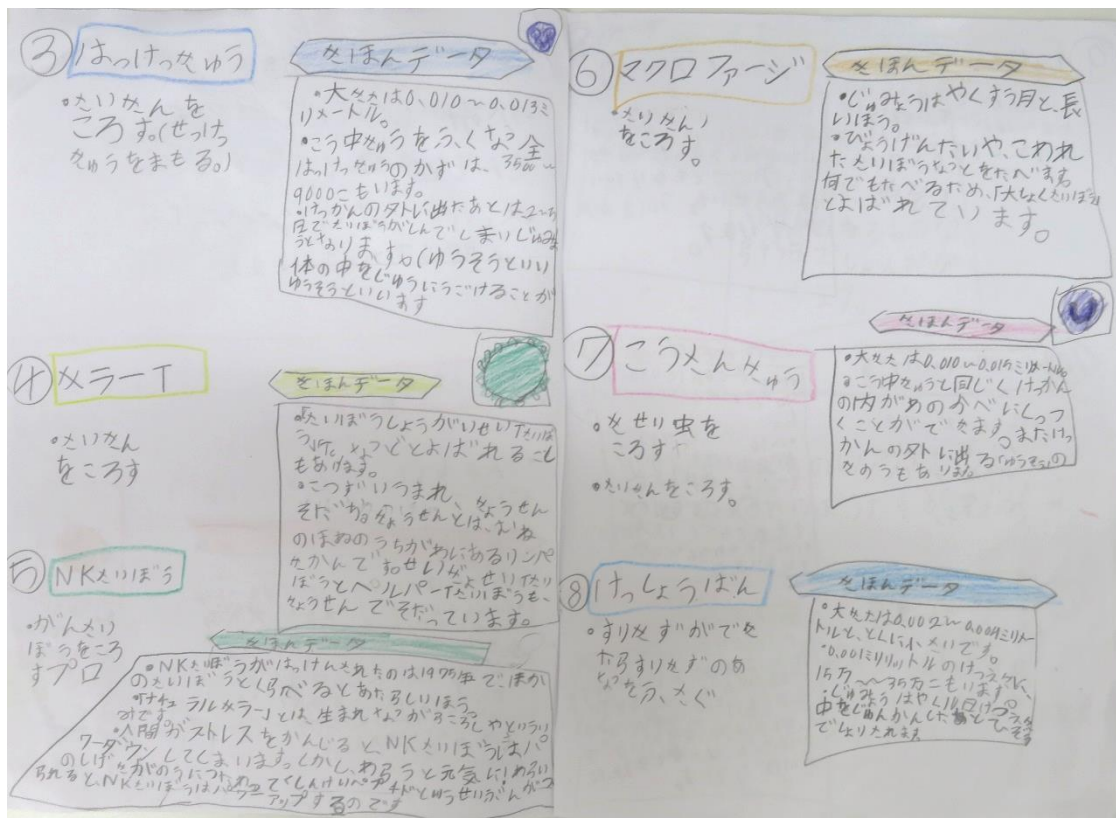 ③ はっけっきゅう
・さいきんを
ころす。(せっけっ
きゅうをまもる。)
きほんデータ
・大きさは0.010～0.013ミ
リメートル。
・こう中きゅうをふくむ全
はっけっきゅうのかずは、3500～
9000こもいます。
・けっかんの外に出たあとは2～5
日でさいぼうがしんでしまいじゅみょ
うとなります。(ゆうそうといい
体の中をじゆうにうごけることが
ゆうそうといいます
④ キラーT
・さいきん
をころす
きほんデータ
・「さいぼうしょうがいせいTさいぼ
う」などとよばれること
もあります。
・こつずいうまれ、きょうせん
そだち。きょうせんとは、むね
のほねのうちがわにあるリンパ
きかんです。せいぎょせいTさい
ぼうとヘルパーTさいぼうも、
きょうせんでそだっています。
⑤ NKさいぼう
・がんさい
ぼうをころ
すプロ
きほんデータ
・NKさいぼうがはっけんされたのは1975年で、ほか
のさいぼうとくらべるとあたらしいほう
です。
・「ナチュラルキラー」とは、生まれながらころしやといういみ
・人間がストレスをかんじると、NKさいぼうはパ
ワーダウンしてしまいます。しかし、わらうと元気に!わらい
のしげきがのうにつたわってくしんけいペプチドというせいぶんがつく
られると、NKさいぼうはパワー
アップするのです
⑥ マクロファージ
・さいきん
をころす。
きほんデータ
・じゅみょうはやくすう月と、長
いほう。
・びょうげんたいや、こわれ
たさいぼうなどをたべます。
何でもたべるため、「大しょくさいぼう」
とよばれています。
⑦ こうさんきゅう
・きせい虫を
ころす
・さいきんをころす。
きほんデータ
・大きさは0.010～0.015ミリメートル。
・こう中きゅうと同じくけっかん
の内がわのかべにくっつ
くことができます。またけっ
かんの外に出る「ゆうそう」の
きのうもあります。
⑧ けっしょうばん
・すりきずができ
たらすりきずのあ
なをふさぐ
きほんデータ
・大きさは0.002～0.004ミリメー
トルと、とくに小さいです。
・0.001ミリリットルのけつえきに、
15万～35万こもいます。
・じゅみょうはやく10日けつえき
中をじゅんかんしたあとひぞう
でしょりされます